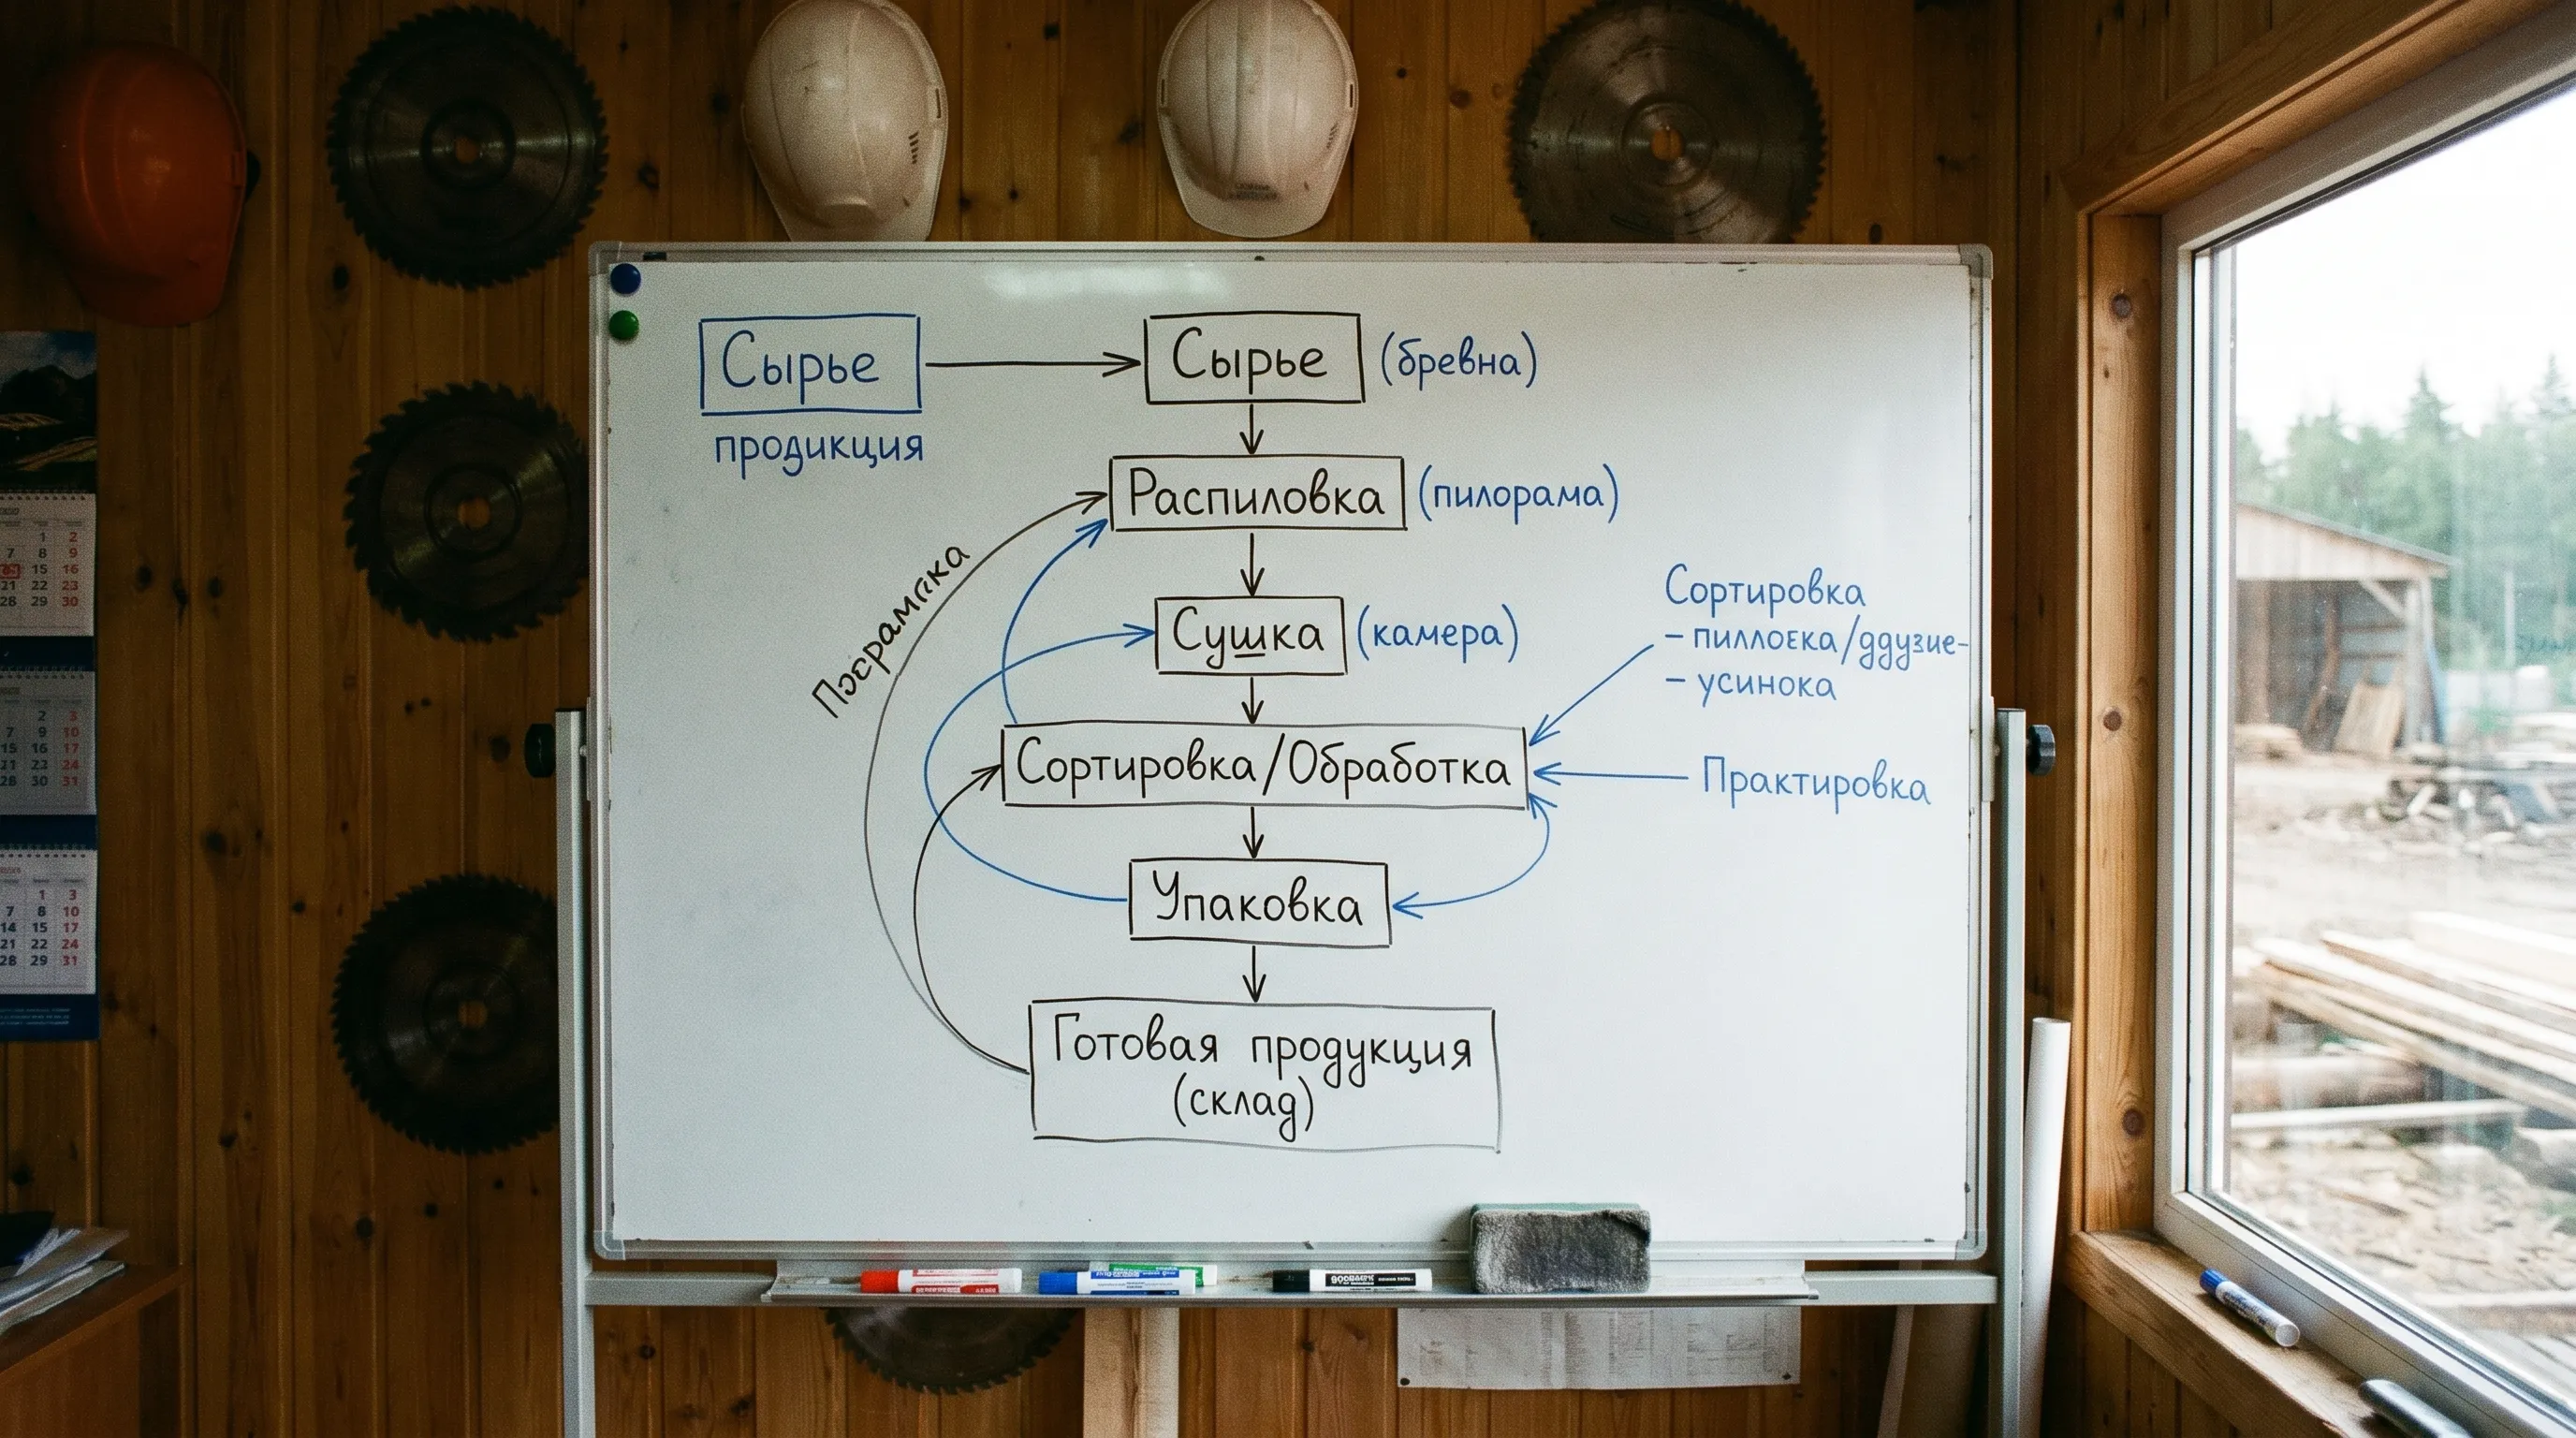 Сырье
продикция
Сырье (бревна)
Распиловка (пилорама)
Сушка (камера)
Сортировка
- пиллоека/ддузие-
- усинока
Сортировка/Обработка
Практировка
Упаковка
Готовая продукция
(склад)